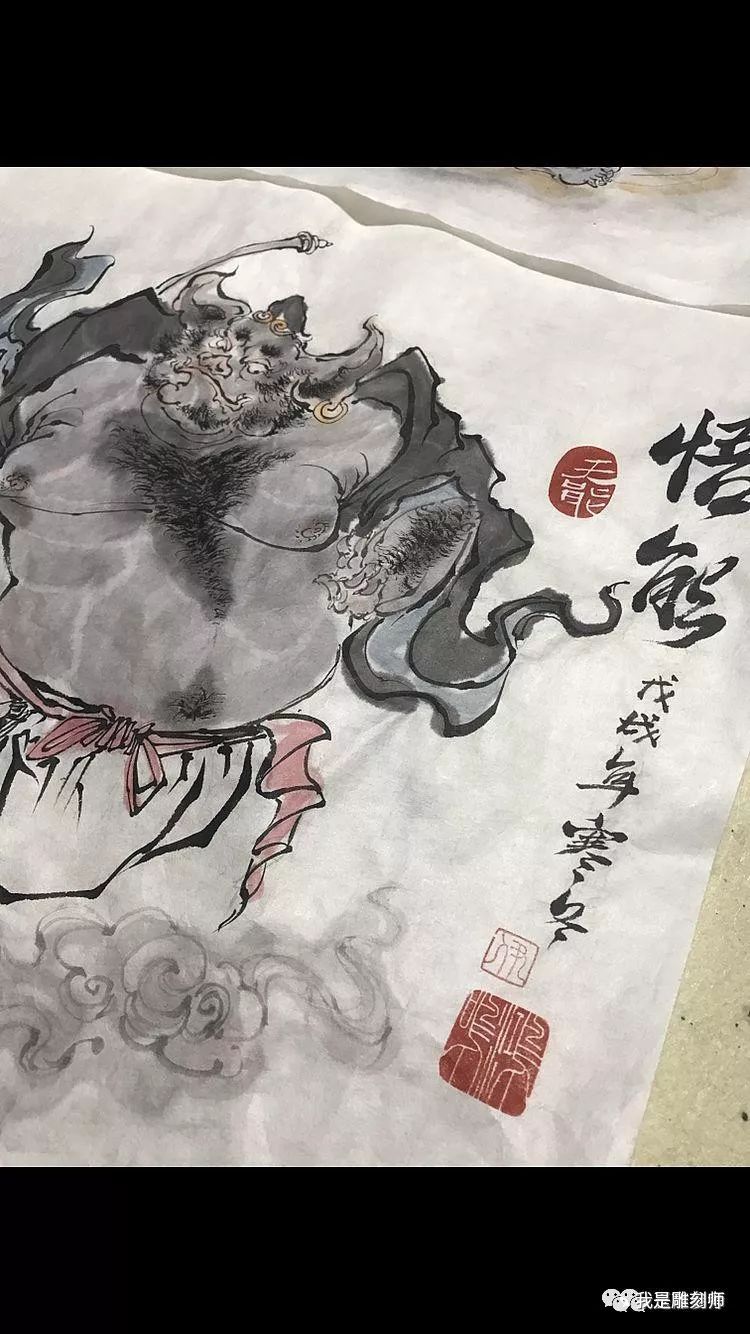 悟能
戊戌年寒冬
我是雕刻师